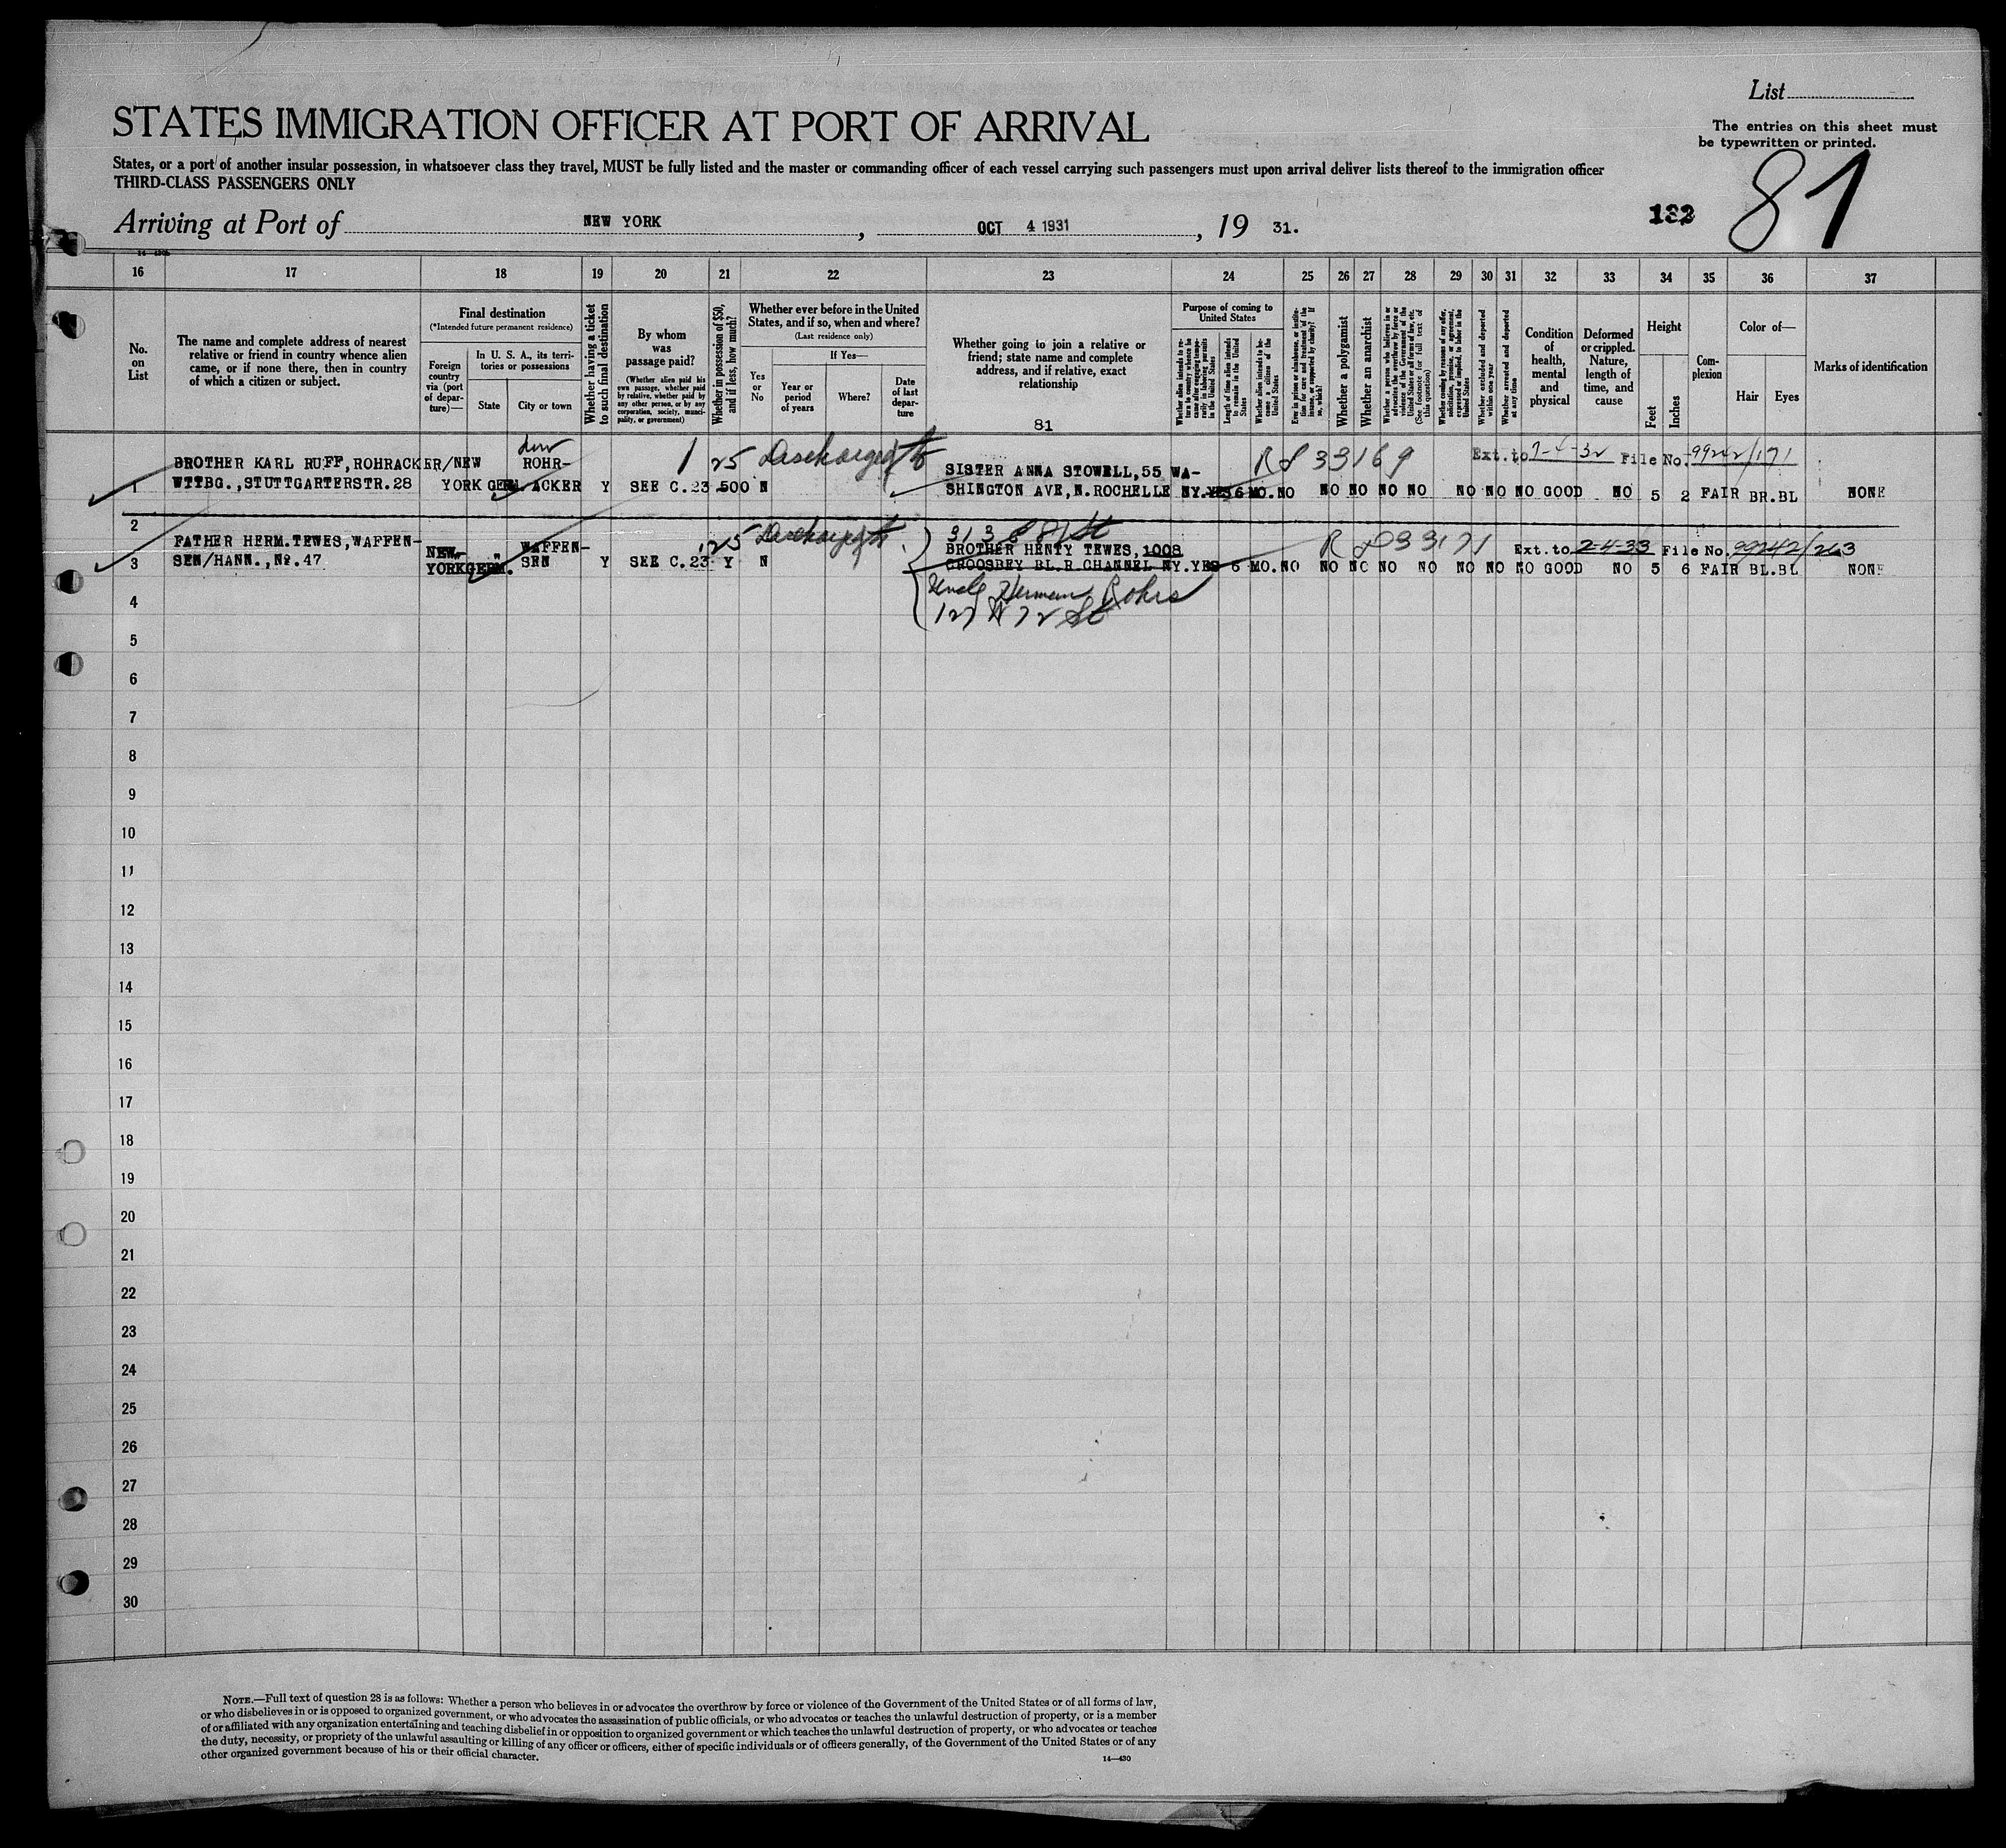 List
STATES IMMIGRATION OFFICER AT PORT OF ARRIVAL
The entries on this sheet must
be typewritten or printed.
States, or a port of another insular possession, in whatsoever class they travel, MUST be fully listed and the master or commanding officer of each vessel carrying such passengers must upon arrival deliver lists thereof to the immigration officer
THIRD-CLASS PASSENGERS ONLY
81
Arriving at Port of NEW YORK, OCT 4 1931, 19 31.
132
16 17 18 19 20 21 22 23 24 25 26 27 28 29 30 31 32 33 34 35 36 37
No.
on
List
The name and complete address of nearest
relative or friend in country whence alien
came, or if none there, then in country
of which a citizen or subject.
Final destination
(*Intended future permanent residence)
Foreign
country
via (port
of depar-
ture)—
In U. S. A., its terri-
tories or possessions
State
City or town
Whether having a ticket
to such final destination
By whom
was
passage paid?
(Whether alien paid his
own passage, whether paid
by relative, whether paid by
any other person, or by any
corporation, society, munici-
pality, or government)
Whether in possession of $50,
and if less, how much?
Whether ever before in the United
States, and if so, when and where?
(Last residence only)
Yes
or
No
If Yes—
Year or
period
of years
Where?
Date
of last
depar-
ture
Whether going to join a relative or
friend; state name and complete
address, and if relative, exact
relationship
81
Purpose of coming to
United States
Whether alien intends to re-
turn to country whence he
came after engaging tempo-
rarily in laboring pursuits
in the United States
Length of time alien intends
to remain in the United
States
Whether alien intends to be-
come a citizen of the
United States
Ever in prison or almshouse, or institu-
tion for care and treatment of the
insane, or supported by charity? If
so, which?
Whether a polygamist
Whether an anarchist
Whether a person who believes in or
advocates the overthrow by force or
violence of the Government of the
United States or all forms of law, etc.
(See footnote for full text of
this question)
Whether coming by reason of any offer,
solicitation, promise, or agreement,
expressed or implied, to labor in the
United States
Whether excluded and deported
within one year
Whether arrested and deported
at any time
Condition
of
health,
mental
and
physical
Deformed
or crippled.
Nature,
length of
time, and
cause
Height
Feet
Inches
Com-
plexion
Color of—
Hair
Eyes
Marks of identification
Discharged
RS 33169
Ext. to 7-4-32 File No. 99242/171
BROTHER KARL RUFF, ROHRACKER/NEW ROHR- 1 25 SISTER ANNA STOWELL, 55 WA-
1 WTTBG., STUTTGARTERSTR. 28 YORK GERM. ACKER Y SEE C. 23 500 N SHINGTON AVE, N. ROCHELLE NY. YES 6 MO. NO NO NO NO NO NO NO NO GOOD NO 5 2 FAIR BR. BL NONE
2
125 Discharged 313 E 81 St
FATHER HERM. TEWES, WAFFEN- NEW- WAFFEN- BROTHER HENTY TEWES, 1008 Ext. to 2-4-33 File No. 99242/263
3 SEN/HANN., No. 47 YORK GERM. SEN Y SEE C. 23 Y N CROOSBEY BL. R. CHANNEL NY. YES 6 MO. NO NO NO NO NO NO NO NO GOOD NO 5 6 FAIR BL. BL NONE
Uncle Herman Rohrs
127 W 72 St
4
5
6
7
8
9
10
11
12
13
14
15
16
17
18
19
20
21
22
23
24
25
26
27
28
29
30
NOTE.—Full text of question 28 is as follows: Whether a person who believes in or advocates the overthrow by force or violence of the Government of the United States or of all forms of law,
or who disbelieves in or is opposed to organized government, or who advocates the assassination of public officials, or who advocates or teaches the unlawful destruction of property, or is a member
of or affiliated with any organization entertaining and teaching disbelief in or opposition to organized government or which teaches the unlawful destruction of property, or who advocates or teaches
the duty, necessity, or propriety of the unlawful assaulting or killing of any officer or officers, either of specific individuals or of officers generally, of the Government of the United States or of any
other organized government because of his or their official character.
14—430